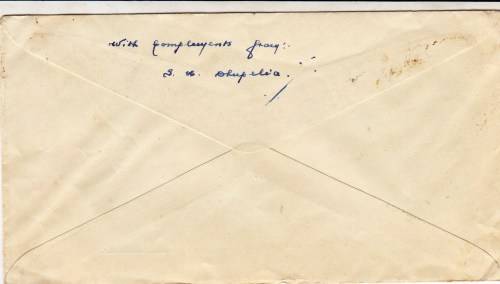 With Complements from:-
S. N. Dhupelia.